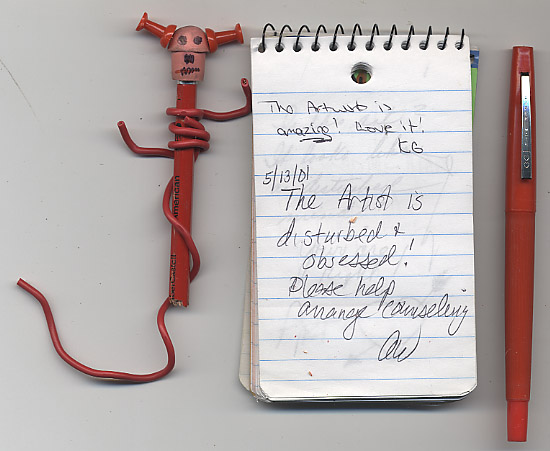 American
The Artist is
amazing! Love it!
KG
5/13/01
The Artist is
disturbed &
obsessed!
Please help
arrange counseling